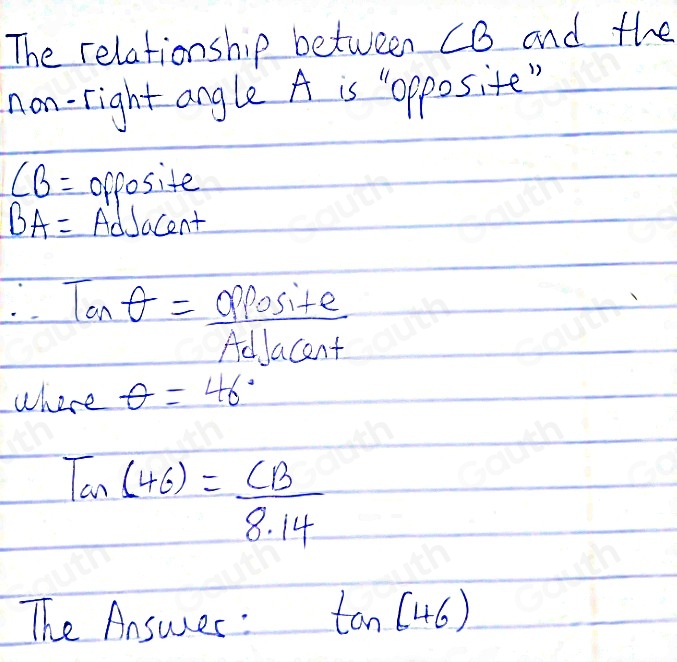 The relationship between CB and the
non-right angle A is "opposite"
CB = opposite
BA = AdJacent
∴ Tan θ = opposite / AdJacent
where θ = 46°
Tan (46) = CB / 8.14
The Answer: tan (46)
Gauth